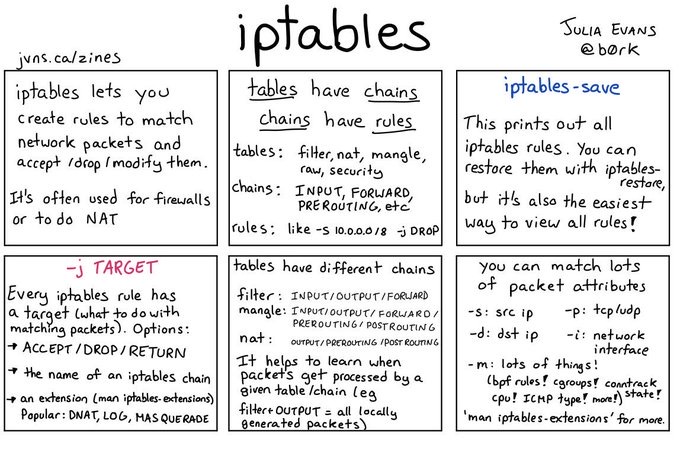 iptables
JULIA EVANS
@b0rk
jvns.ca/zines
iptables lets you
create rules to match
network packets and
accept/drop/modify them.
It's often used for firewalls
or to do NAT
tables have chains
chains have rules
tables: filter, nat, mangle,
raw, security
chains: INPUT, FORWARD,
PREROUTING, etc
rules: like -s 10.0.0.0/8 -j DROP
iptables-save
This prints out all
iptables rules. You can
restore them with iptables-
restore,
but it's also the easiest
way to view all rules!
-j TARGET
Every iptables rule has
a target (what to do with
matching packets). Options:
→ ACCEPT/DROP/RETURN
→ the name of an iptables chain
→ an extension (man iptables-extensions)
Popular: DNAT, LOG, MASQUERADE
tables have different chains
filter: INPUT/OUTPUT/FORWARD
mangle: INPUT/OUTPUT/FORWARD/
PREROUTING/POSTROUTING
nat: OUTPUT/PREROUTING/POSTROUTING
It helps to learn when
packets get processed by a
given table/chain (eg
filter+OUTPUT = all locally
generated packets)
you can match lots
of packet attributes
-s: src ip -p: tcp/udp
-d: dst ip -i: network
interface
-m: lots of things!
(bpf rules! cgroups! conntrack
state!
cpu! ICMP type! more!)
'man iptables-extensions' for more.